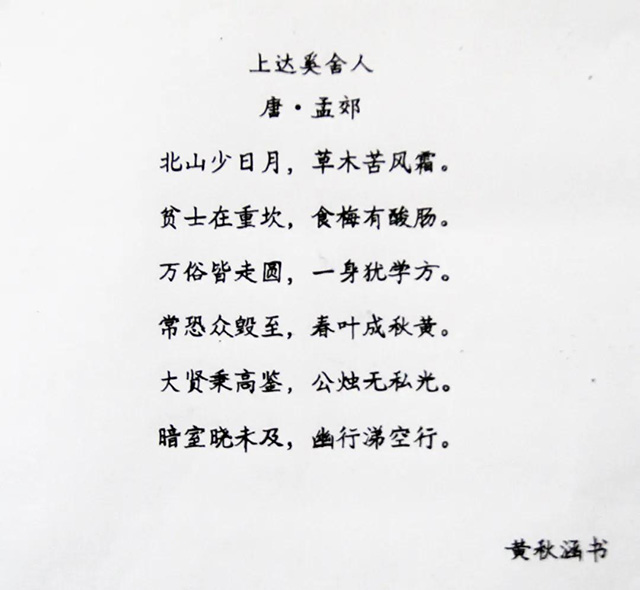 上达奚舍人
唐·孟郊
北山少日月，草木苦风霜。
贫士在重坎，食梅有酸肠。
万俗皆走圆，一身犹学方。
常恐众毁至，春叶成秋黄。
大贤秉高鉴，公烛无私光。
暗室晓未及，幽行涕空行。
黄秋涵书